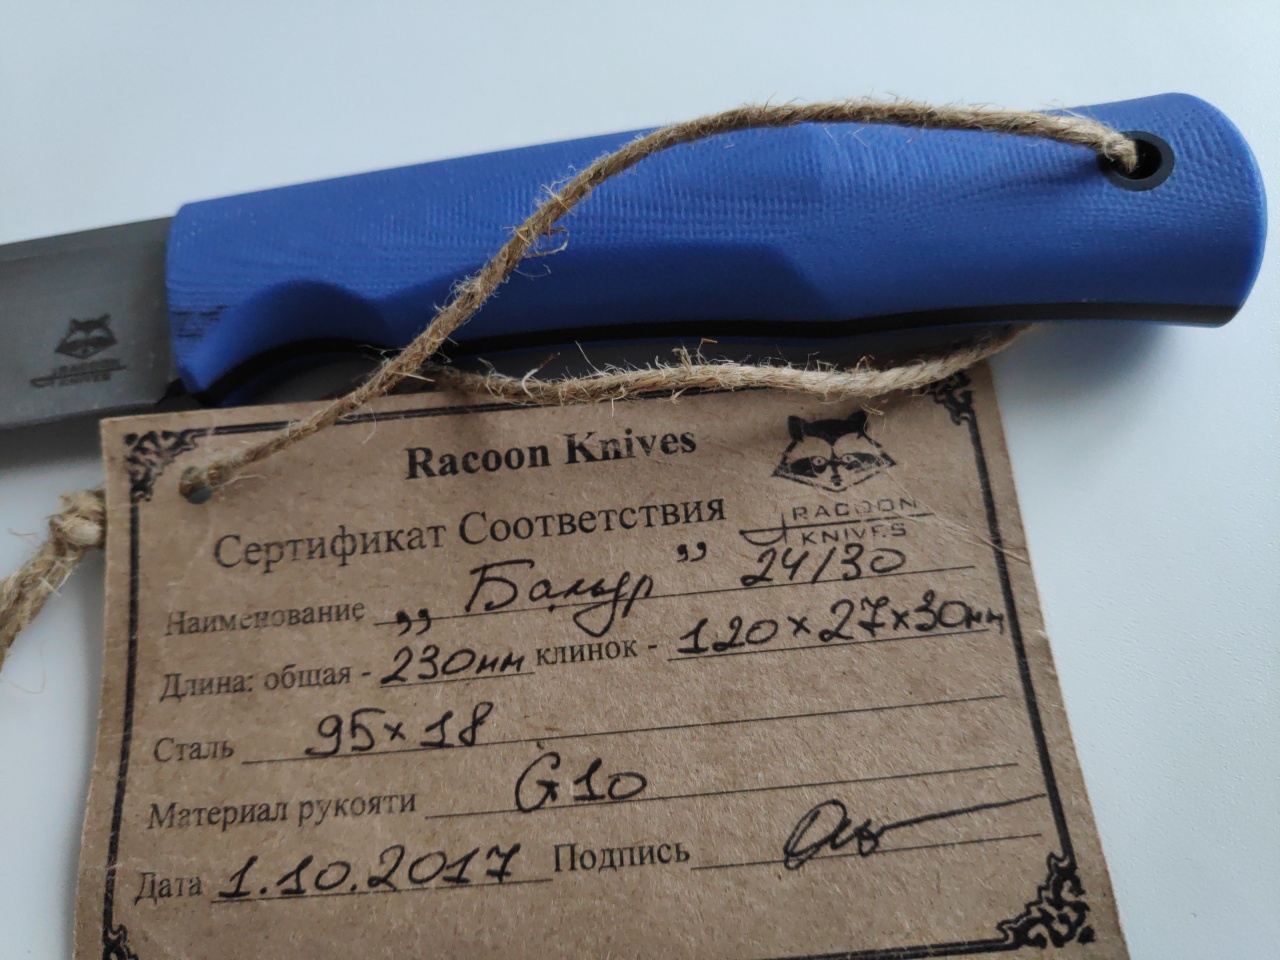 RACOON
KNIVES
Racoon Knives
RACOON
KNIVES
Сертификат Соответствия
Наименование ,, Бальдр " 24/30
Длина: общая - 230мм клинок - 120×27×30мм
Сталь 95×18
Материал рукояти G10
Дата 1.10.2017 Подпись